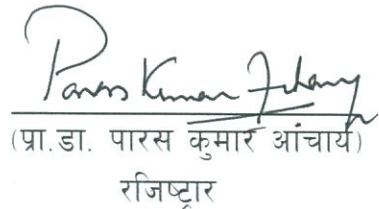 Paras Kumar Acharya
(प्रा.डा. पारस कुमार आचार्य)
रजिष्ट्रार